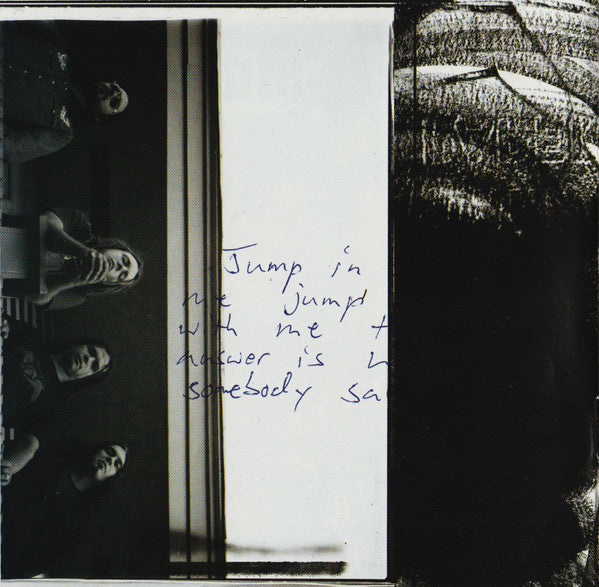 Jump in
me jump
with me t
answer is
somebody sa